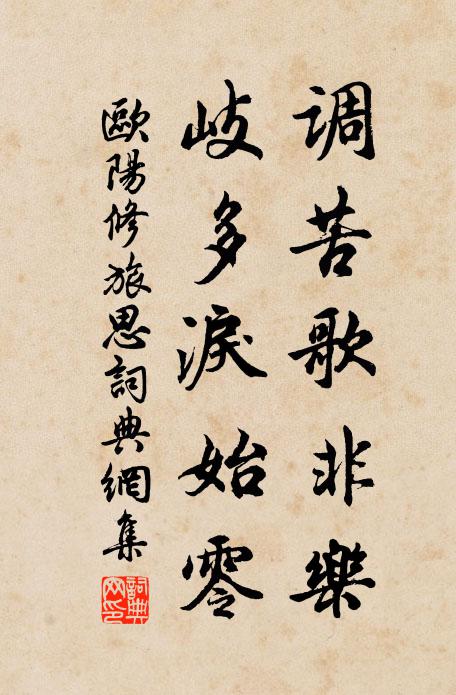 调苦歌非樂
岐多淚始零
歐陽修旅思詞典網集
詞典
网印